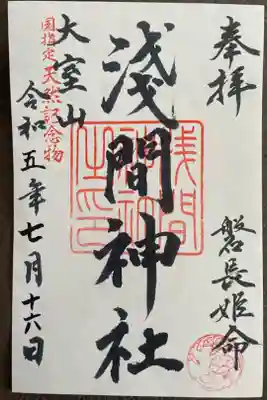 奉拝
磐長姫命
浅間神社
大室山
国指定 天然記念物
令和五年七月十六日